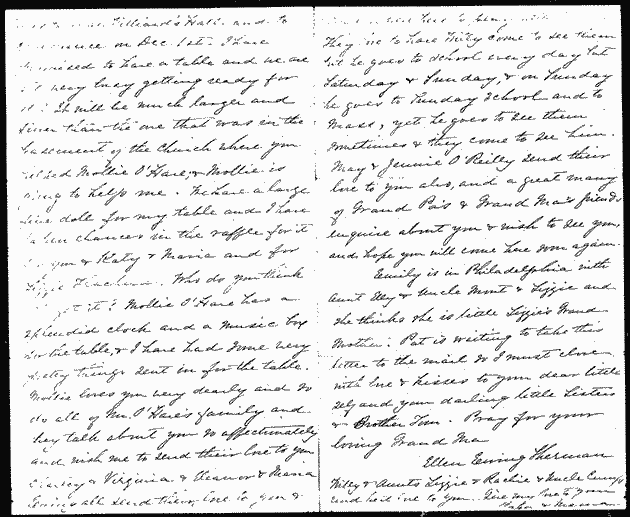 Hall and to
commence on Dec. 1st. I have
promised to have a table and we are
all very busy getting ready for
it. It will be much larger and
finer than the one that was in the
basement of the Church where you
helped Mollie O'Hare, & Mollie is
going to help me. We have a large
fine doll for my table and I have
taken chances in the raffle for it
for you & Katy & Maria and for
Lizzie. Who do you think
will get it? Mollie O'Hare has a
splendid clock and a music box
for the table, & I have had some very
pretty things sent in for the table.
Mollie loves you very dearly and so
do all of Mr. O'Hare's family and
they talk about you so affectionately
and wish me to send their love to you
Charley & Virginia & Eleanor & Maria
Ewing all send their love to you &
They love to have Willy come to see them
but he goes to School every day but
Saturday & Sunday, & on Sunday
he goes to Sunday School and to
Mass, yet he goes to see them
sometimes & they come to see him.
May & Jennie O'Reiley send their
love to you also, and a great many
of Grand Pa's & Grand Ma's friends
enquire about you & wish to see you,
and hope you will come here soon again.
Emily is in Philadelphia with
Aunt Elly & Uncle Mont & Lizzie and
she thinks she is little Lizzie's Grand
Mother. Pat is waiting to take this
letter to the mail so I must close
with love & kisses to your dear little
self and your darling little Sisters
& Brother Tom. Pray for your
loving Grand Ma
Ellen Ewing Sherman
Willy & Aunts Lizzie & Rachie & Uncle Cump
send best love to you. Give my love to your
Papa & Mama.